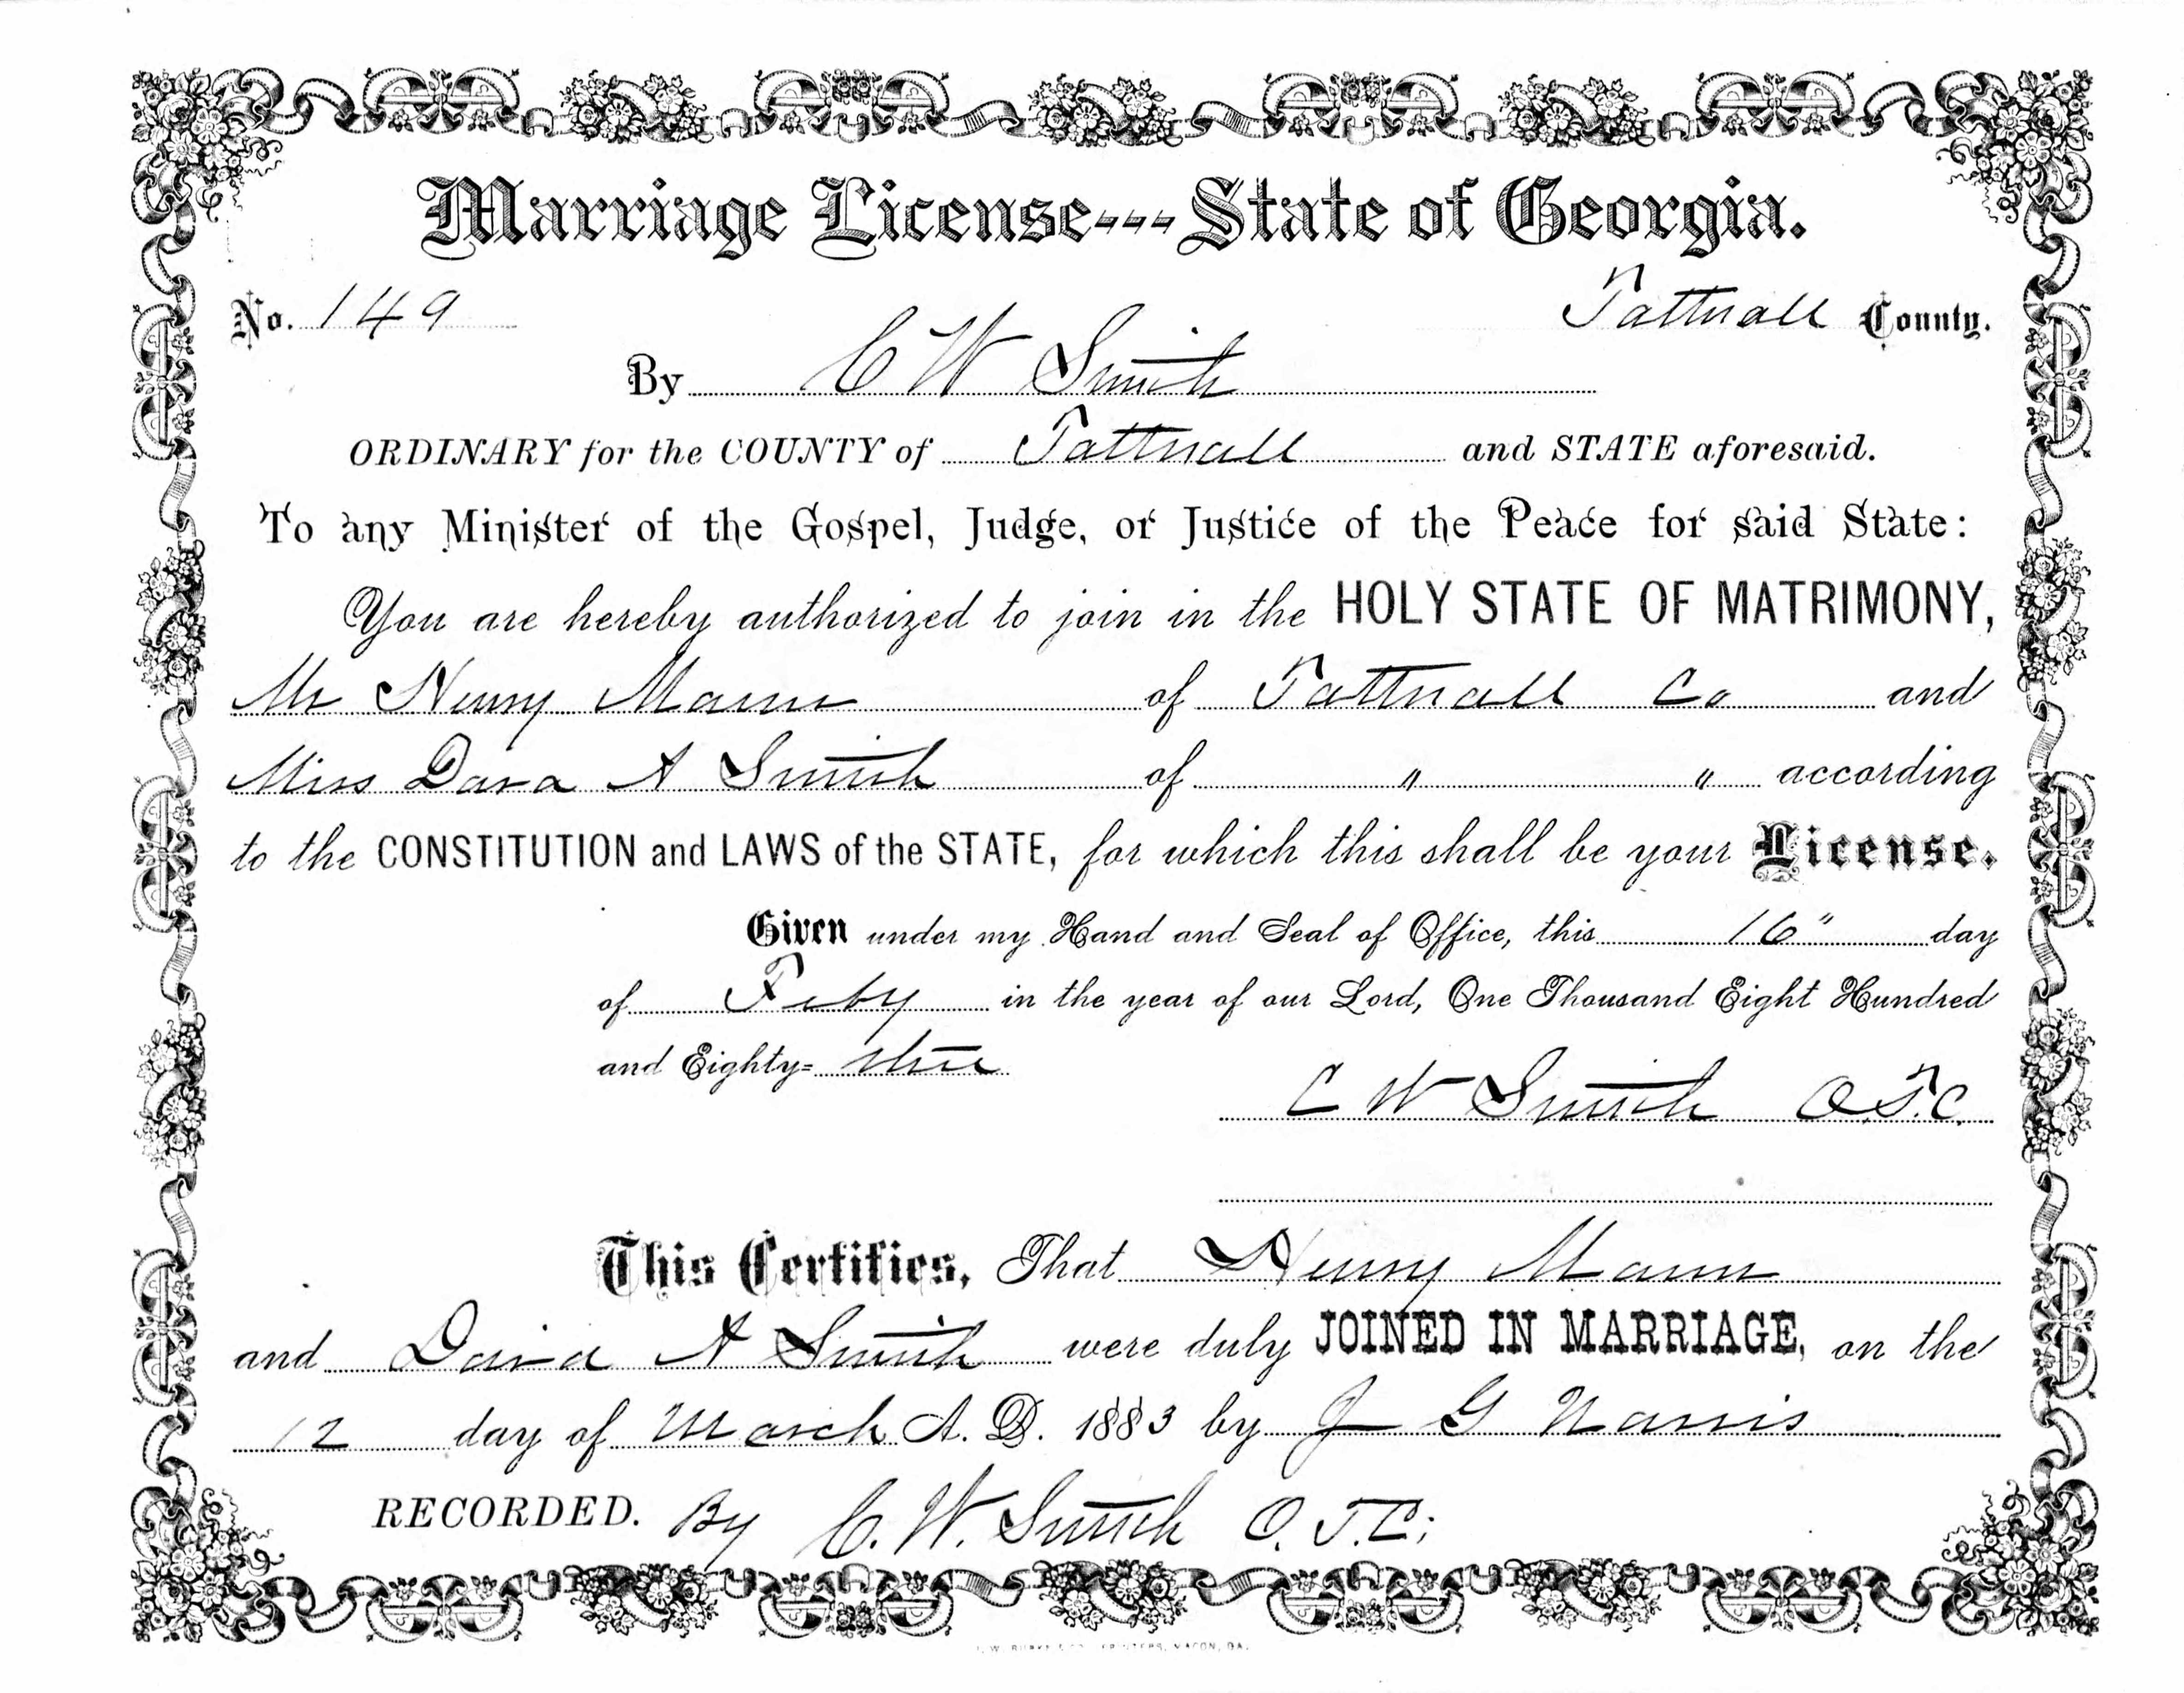 Marriage License---State of Georgia.
No. 149 Tattnall County.
By C W Smith
ORDINARY for the COUNTY of Tattnall and STATE aforesaid.
To any Minister of the Gospel, Judge, or Justice of the Peace for said State:
You are hereby authorized to join in the HOLY STATE OF MATRIMONY,
Mr Henry Mann of Tattnall Co and
Miss Dava A Smith of " " according
to the CONSTITUTION and LAWS of the STATE, for which this shall be your License.
Given under my Hand and Seal of Office, this 16" day
of Feby in the year of our Lord, One Thousand Eight Hundred
and Eighty= three
C W Smith O.T.C.
This Certifies, That Henry Mann
and A Smith were duly JOINED IN MARRIAGE, on the
12 day of March A. D. 1883 by J G Norris
RECORDED. By C. W. Smith O. T. C;
W. BURKE & CO. PRINTERS, MACON, GA.